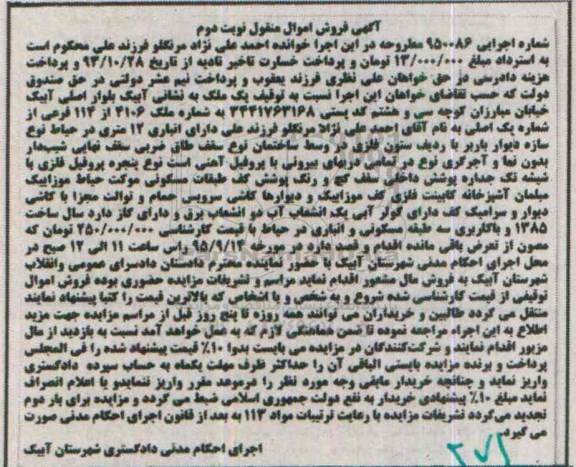 آگهی فروش اموال منقول نوبت دوم
شماره اجرایی ۹۵۰۰۸۶ مطروحه در این اجرا خوانده احمد علی نژاد مرنگلو فرزند علی محکوم است
به استرداد مبلغ ۱۳/۰۰۰/۰۰۰ تومان و پرداخت خسارت تاخیر تادیه از تاریخ ۹۳/۱۰/۲۸ و پرداخت
هزینه دادرسی در حق خواهان علی نظری فرزند یعقوب و پرداخت نیم عشر دولتی در حق صندوق
دولت که حسب تقاضای خواهان این اجرا نسبت به توقیف یک ملک به نشانی آبیک بلوار اصلی آبیک
خیابان مبارزان کوچه سی و هشتم کد پستی ۳۴۴۱۷۶۳۱۶۸ به شماره ملک ۴۱۰۶ از ۱۱۴ فرعی از
شماره یک اصلی به نام آقای احمد علی نژاد مرنگلو فرزند علی دارای انباری ۱۲ متری در حیاط نوع
سازه دیوار باربر با ردیف ستون فلزی در وسط ساختمان نوع سقف طاق ضربی سقف نهایی شیب‌دار
بدون نما و آجرگری نوع در تمامی دربهای بیرونی با پروفیل آهنی است نوع پنجره پروفیل فلزی با
شیشه تک جداره پوشش داخلی سقف گچ و رنگ پوشش کف طبقات مسکونی موکت حیاط موزاییک
مبلمان آشپزخانه کابینت فلزی کف موزاییک و دیوارها کاشی سرویس حمام و توالت مجزا با کاشی
دیوار و سرامیک کف دارای کولر آبی یک انشعاب آب دو انشعاب برق و دارای گاز دارد سال ساخت
۱۳۸۵ و باکاربری سه طبقه مسکونی و انباری در حیاط با قیمت کارشناسی ۲۵۰/۰۰۰/۰۰۰ تومان که
مصون از تعرض باقی مانده اقدام و قصد دارد در مورخه ۹۵/۹/۱۴ راس ساعت ۱۱ الی ۱۲ صبح در
محل اجرای احکام مدنی شهرستان آبیک با حضور نماینده محترم دادستان دادسرای عمومی وانقلاب
شهرستان آبیک به فروش مال مشعور اقدام نماید مراسم و تشریفات مزایده حضوری بوده فروش اموال
توقیفی از قیمت کارشناسی شده شروع و به شخص و یا اشخاص که بالاترین قیمت را کتبا پیشنهاد نمایند
منتقل می گردد طالبین و خریداران می توانند همه روزه تا پنج روز قبل از مراسم مزایده جهت مزید
اطلاع به این اجراء مراجعه نموده تا ضمن هماهنگی لازم که به عمل خواهد آمد نسبت به بازدید از مال
مزبور اقدام نمایند و شرکت‌کنندگان در مزایده می بایست بدوا ۱۰٪ قیمت پیشنهاد شده را فی المجلس
پرداخت و برنده مزایده بایستی الباقی آن را حداکثر ظرف مهلت یکماه به حساب سپرده دادگستری
واریز نماید و چنانچه خریدار مابقی وجه مورد نظر را درموعد مقرر واریز ننمایدو یا اعلام انصراف
نماید مبلغ ۱۰٪ پیشنهادی خریدار به نفع دولت جمهوری اسلامی ضبط می گردد و مزایده برای بار دوم
تجدید می‌گردد تشریفات مزایده با رعایت ترتیبات مواد ۱۱۳ به بعد از قانون اجرای احکام مدنی صورت
می گیرد.
اجرای احکام مدنی دادگستری شهرستان آبیک